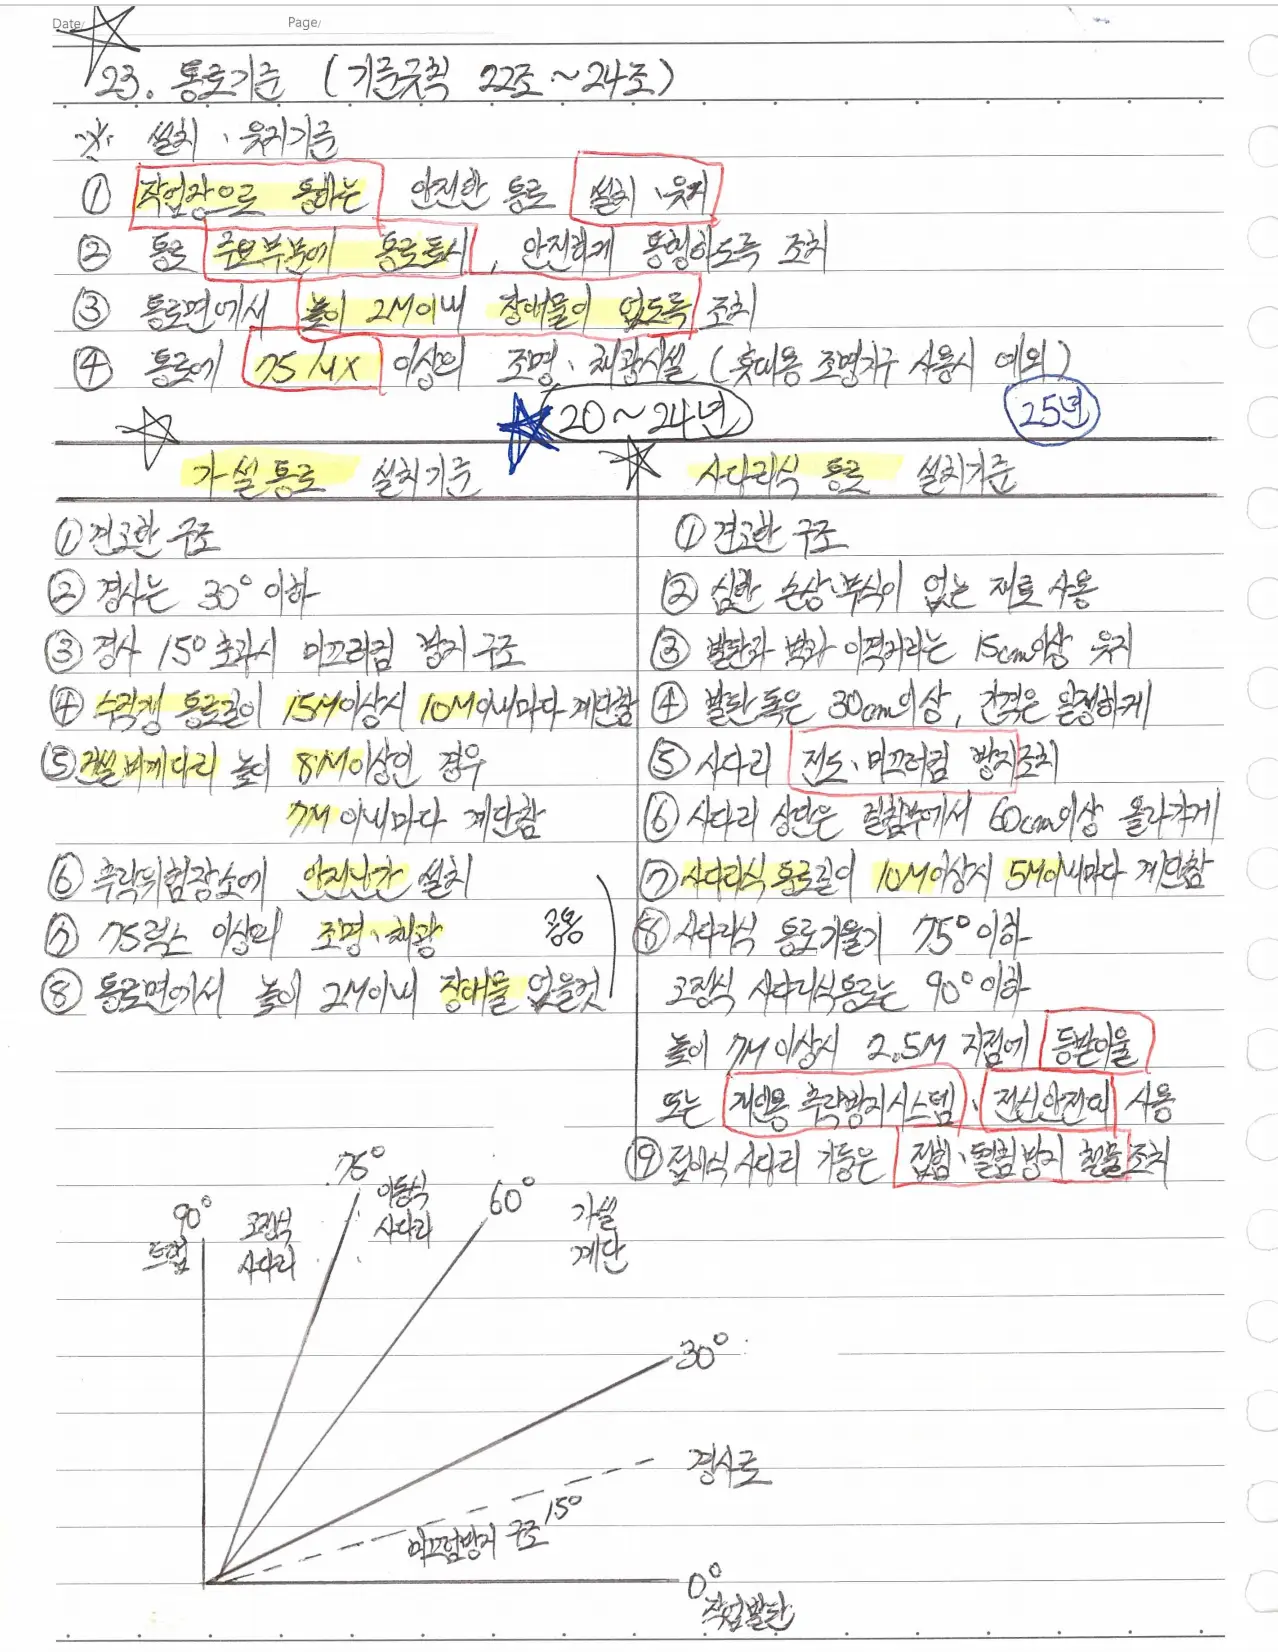 Date/ Page/
23. 통로기준 (기준규칙 22조~24조)
※ 설치、유지기준
① 작업장으로 통하는 안전한 통로 설치、유지
② 통로 주요부분에 통로표시, 안전하게 통행하도록 조치
③ 통로면에서 높이 2M이내 장애물이 없도록 조치
④ 통로에 75 lux 이상의 조명、채광시설 (휴대용 조명기구 사용시 예외)
20~24년 25년
가설통로 설치기준
① 견고한 구조
② 경사는 30° 이하
③ 경사 15° 초과시 미끄러짐 방지 구조
④ 수직갱 통로길이 15M이상시 10M이내마다 계단참
⑤ 건설비계다리 높이 8M이상인 경우
7M 이내마다 계단참
⑥ 추락위험장소에 안전난간 설치
⑦ 75럭스 이상의 조명、채광
⑧ 통로면에서 높이 2M이내 장애물 없을것
공통
사다리식 통로 설치기준
① 견고한 구조
② 심한 손상·부식이 없는 재료 사용
③ 발판과 벽과 이격거리는 15cm이상 유지
④ 발판 폭은 30cm이상, 간격은 일정하게
⑤ 사다리 전도、미끄러짐 방지조치
⑥ 사다리 상단은 걸침부에서 60cm이상 올라가게
⑦ 사다리식 통로길이 10M이상시 5M이내마다 계단참
⑧ 사다리식 통로기울기 75° 이하
고정식 사다리식통로는 90° 이하
높이 7M 이상시 2.5M 지점에 등받이울
또는 개인용 추락방지시스템、전신안전대 사용
⑨ 접이식 사다리 기둥은 접힘、펼침방지 철물조치
90° 트랩
고정식 사다리
75°
이동식 사다리
60°
가설 계단
30°
경사로
15°
미끄럼방지 구조
0°
작업발판